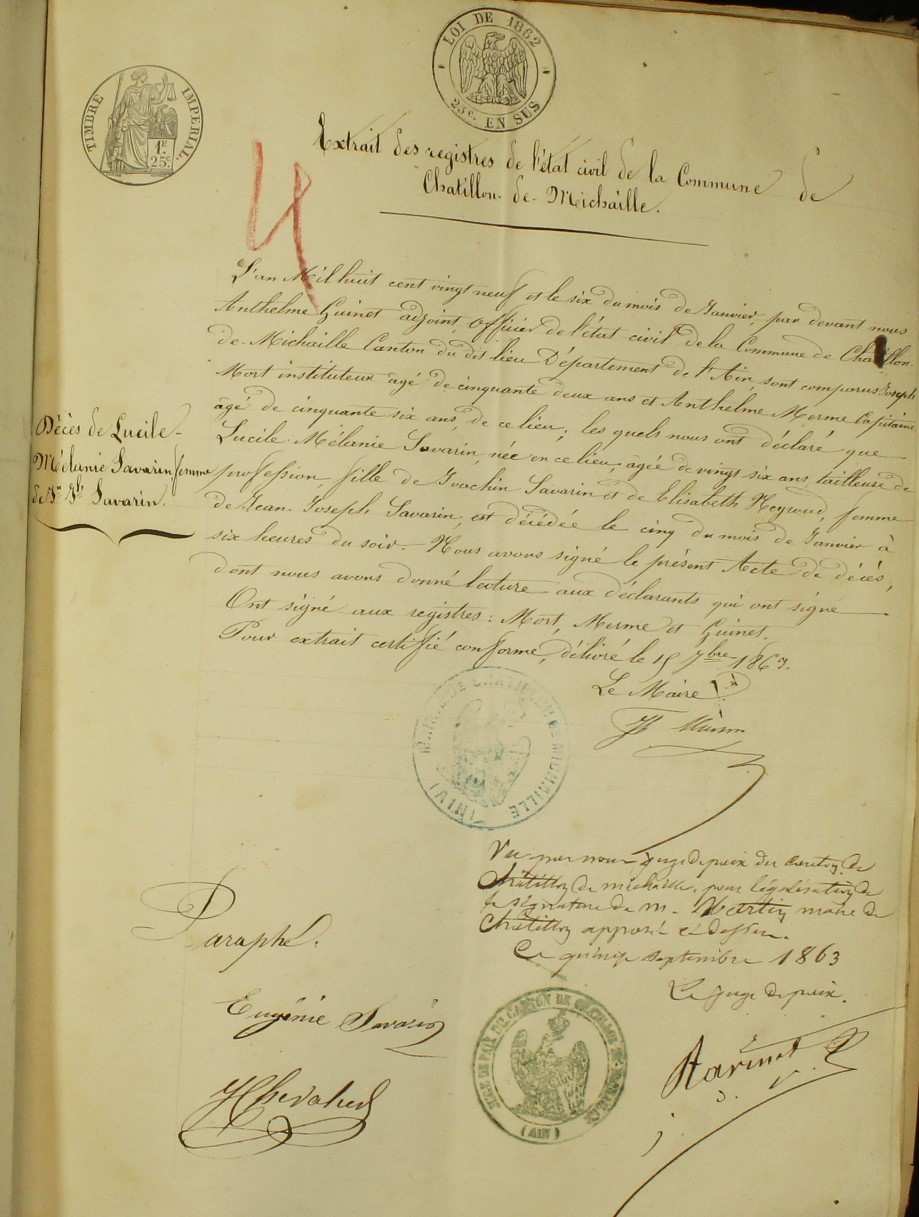 LOI DE 1862
25c. EN SUS
TIMBRE IMPERIAL.
1f. 25c.
4
Extrait des registres de l'état civil de la Commune de
Chatillon-de-Michaille.
L'an Mil huit cent vingt neuf et le six du mois de Janvier, par devant nous
Anthelme Guinet adjoint, Officier de l'état civil de la Commune de Chatillon-
de-Michaille Canton du dit lieu Département de l'Ain, sont comparus Joseph
Mort instituteur agé de cinquante deux ans et Anthelme Merme Capitaine
âgé de cinquante six ans, de ce lieu, les quels nous ont déclaré que
Lucile-Mélanie Savarin, née en ce lieu, agée de vingt six ans, tailleuse de
profession fille de Joachin Savarin et de Elisabeth Neyroud, femme
de Jean-Joseph Savarin, est décédée le cinq du mois de Janvier à
six heures du soir. Nous avons signé le présent Acte de décès,
dont nous avons donné lecture aux déclarants qui ont signé
Ont signé aux registres: Mort, Merme et Guinet.
Pour extrait certifié conforme, délivré le 15 7bre 1863.
Le Maire
Décès de Lucile-
Mélanie Savarin, femme
de Jn Jh Savarin.
MAIRIE DE CHATILLON DE MICHAILLE
(AIN)
Vu par nous juge de paix du canton de
Châtillon de michaille, pour légalisation de
la signature de m. Martin maire de
Châtillon apposée ci dessus.
Ce quinze septembre 1863
Le juge de paix.
Paraphé.
Eugénie Savarin
JUST. DE PAIX DU CANTON DE CHATILLON DE MICHAILLE
(AIN)